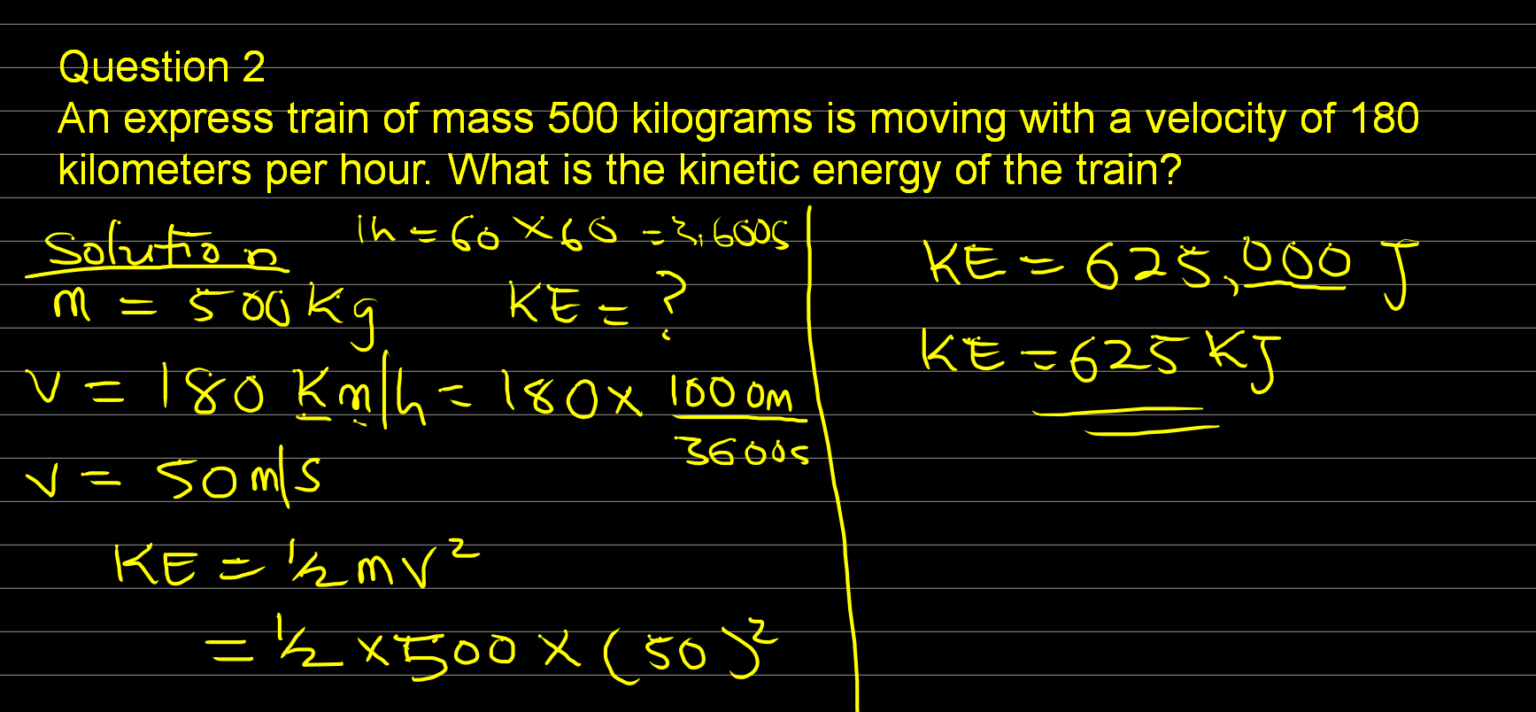 Question 2
An express train of mass 500 kilograms is moving with a velocity of 180
kilometers per hour. What is the kinetic energy of the train?
Solution 1h = 60 × 60 = 3,600s
m = 500Kg KE = ?
V = 180 Km/h = 180 × 1000m/3600s
V = 50m/s
KE = 1/2 mv²
= 1/2 × 500 × (50)²
KE = 625,000 J
KE = 625 KJ